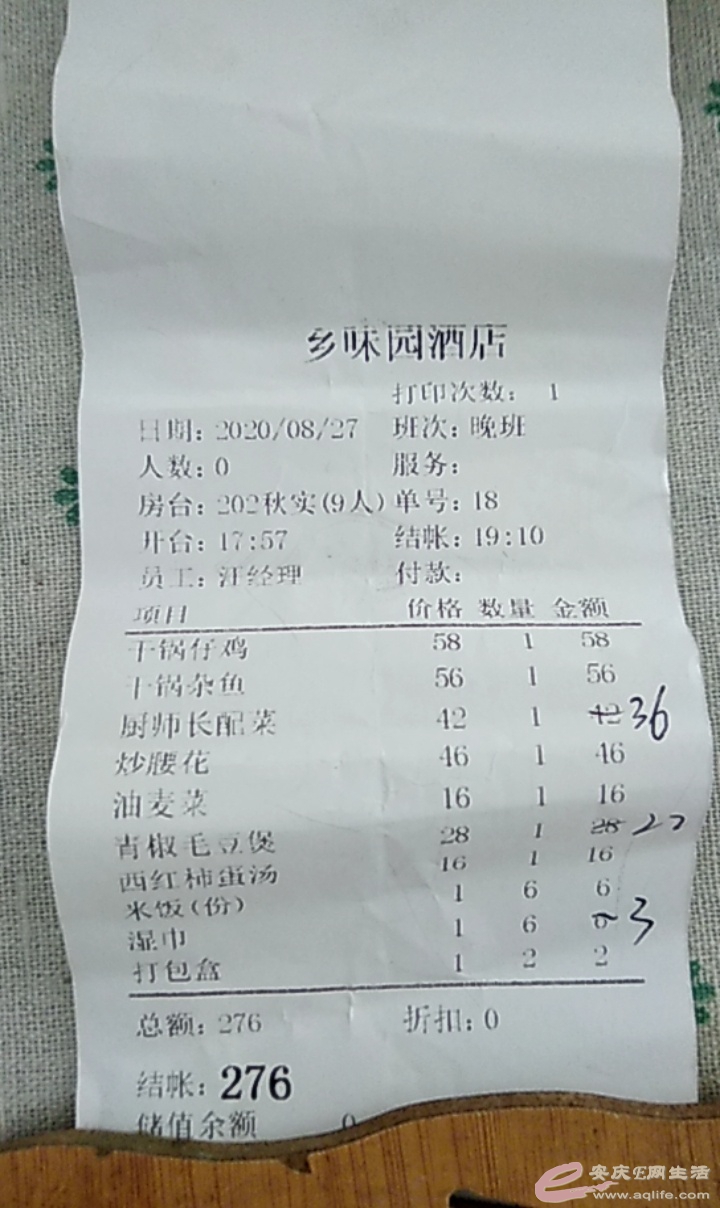 乡味园酒店
打印次数： 1
日期：2020/08/27 班次：晚班
人数：0 服务：
房台：202秋实(9人) 单号：18
开台：17:57 结帐：19:10
员工：汪经理 付款：
项目 价格 数量 金额
干锅仔鸡 58 1 58
干锅杂鱼 56 1 56
厨师长配菜 42 1 42 36
炒腰花 46 1 46
油麦菜 16 1 16
青椒毛豆煲 28 1 28
西红柿蛋汤 16 1 16
米饭(份) 1 6 6
湿巾 1 6 6 3
打包盒 1 2 2
总额：276 折扣：0
结帐：276
储值余额 0
安庆E网生活
www.aqlife.com